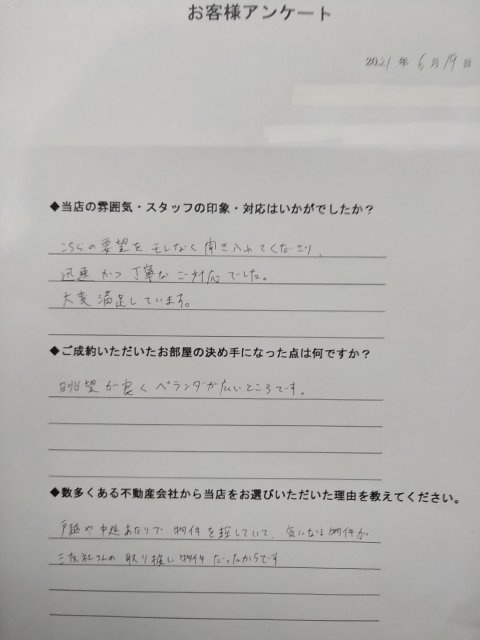 お客様アンケート
2021年 6月19日
◆当店の雰囲気・スタッフの印象・対応はいかがでしたか？
こちらの要望をモレなく聞き入れてくださり、
迅速かつ丁寧なご対応でした。
大変満足しています。
◆ご成約いただいたお部屋の決め手になった点は何ですか？
眺望が良くベランダが広いところです。
◆数多くある不動産会社から当店をお選びいただいた理由を教えてください。
戸越や中延あたりで物件を探していて、気になる物件が
三友社さんの取り扱い物件だったからです